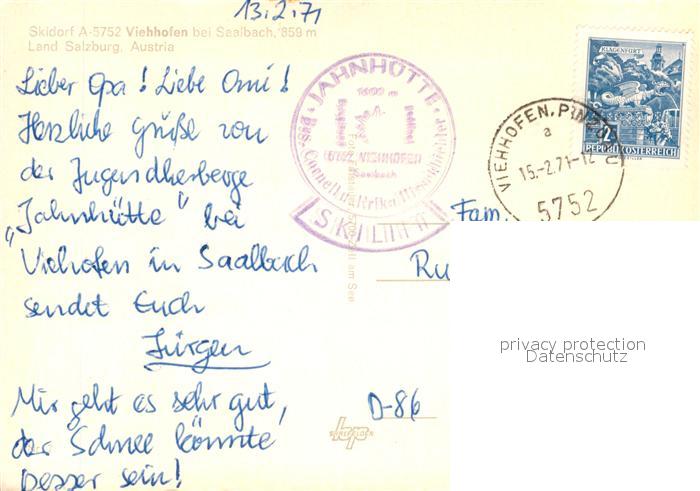 13.2.71
Skidorf A-5752 Viehhofen bei Saalbach, 859 m
Land Salzburg, Austria
Lieber Opa! Liebe Omi!
Herzliche Grüße von
der Jugendherberge
"Jahnhütte" bei
Viehofen in Saalbach
sendet Euch
Jürgen
Mir geht es sehr gut,
der Schnee könnte
besser sein!
JAHNHÜTTE
1600 m
5752 VIEHHOFEN
Saalbach
SKILIFT
am See
KLAGENFURT
REPUBLIK ÖSTERREICH
VIEHHOFEN, PINZG
a
15.-2.71-12
5752
Fam.
Ru
D-86
privacy protection
Datenschutz